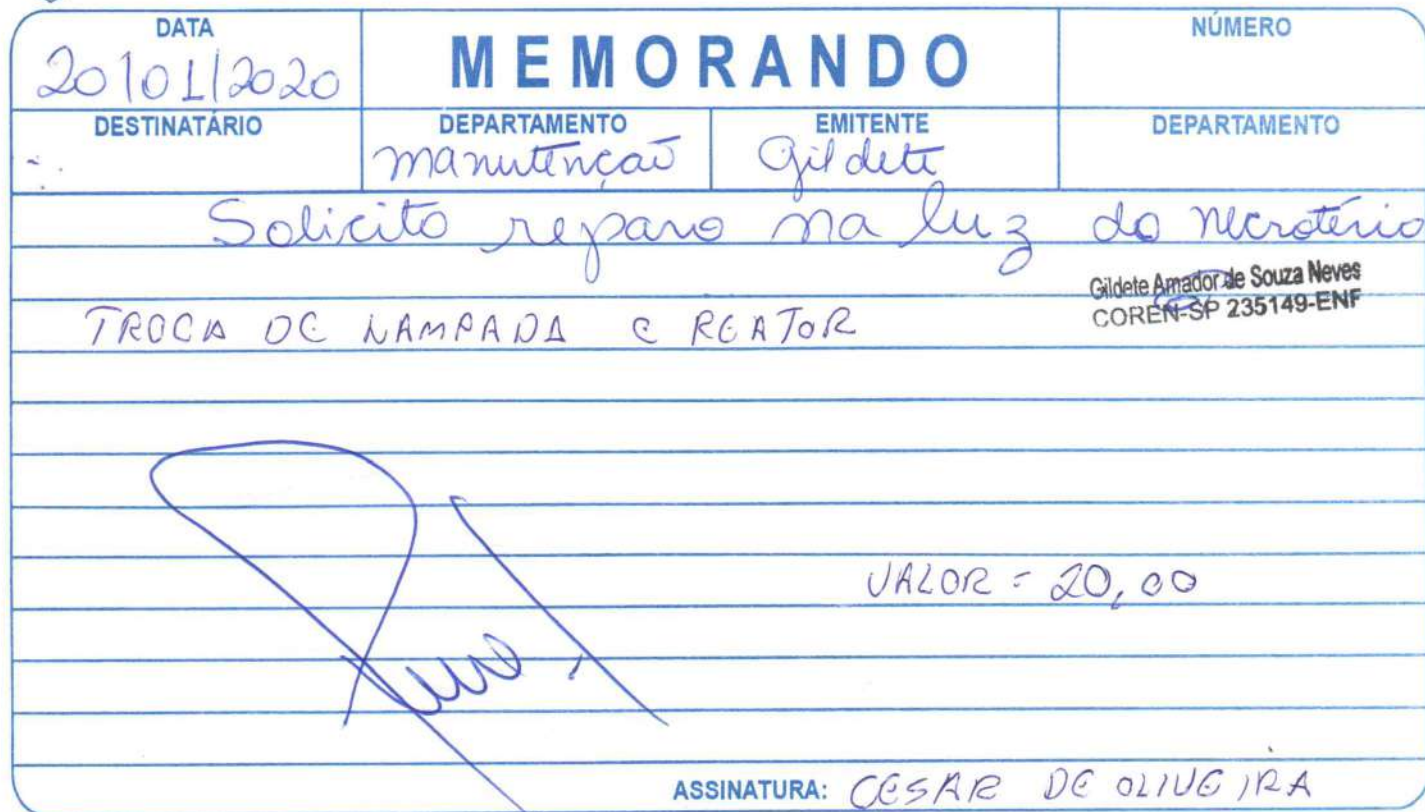 DATA
20/01/2020
MEMORANDO
NÚMERO
DESTINATÁRIO
DEPARTAMENTO
manutenção
EMITENTE
Gildete
DEPARTAMENTO
Solicito reparo na luz do necrotério
Gildete Amador de Souza Neves
COREN-SP 235149-ENF
TROCA DE LAMPADA E REATOR
VALOR = 20,00
ASSINATURA: CESAR DE OLIVEIRA